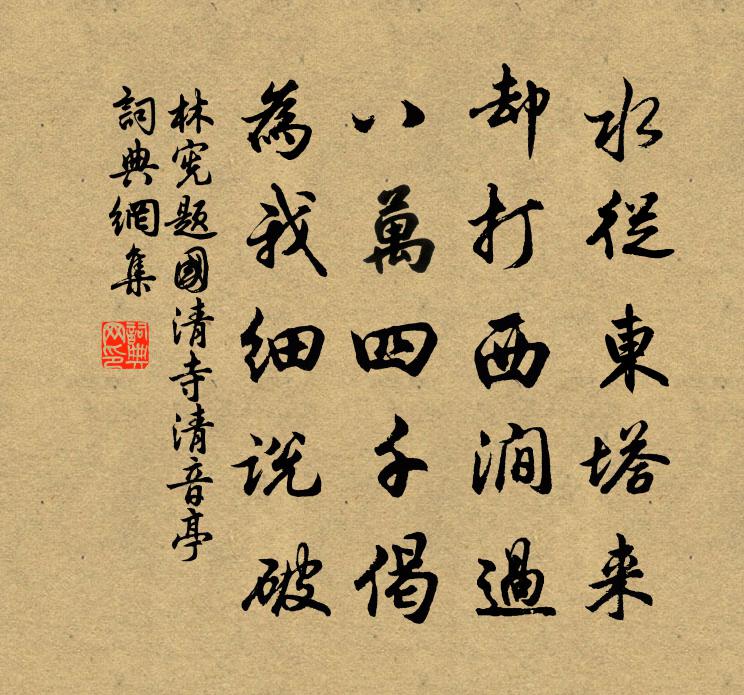 水從東塔来
却打西澗過
八萬四千偈
為我细说破
林宪题國清寺清音亭
詞典網集
詞典网印